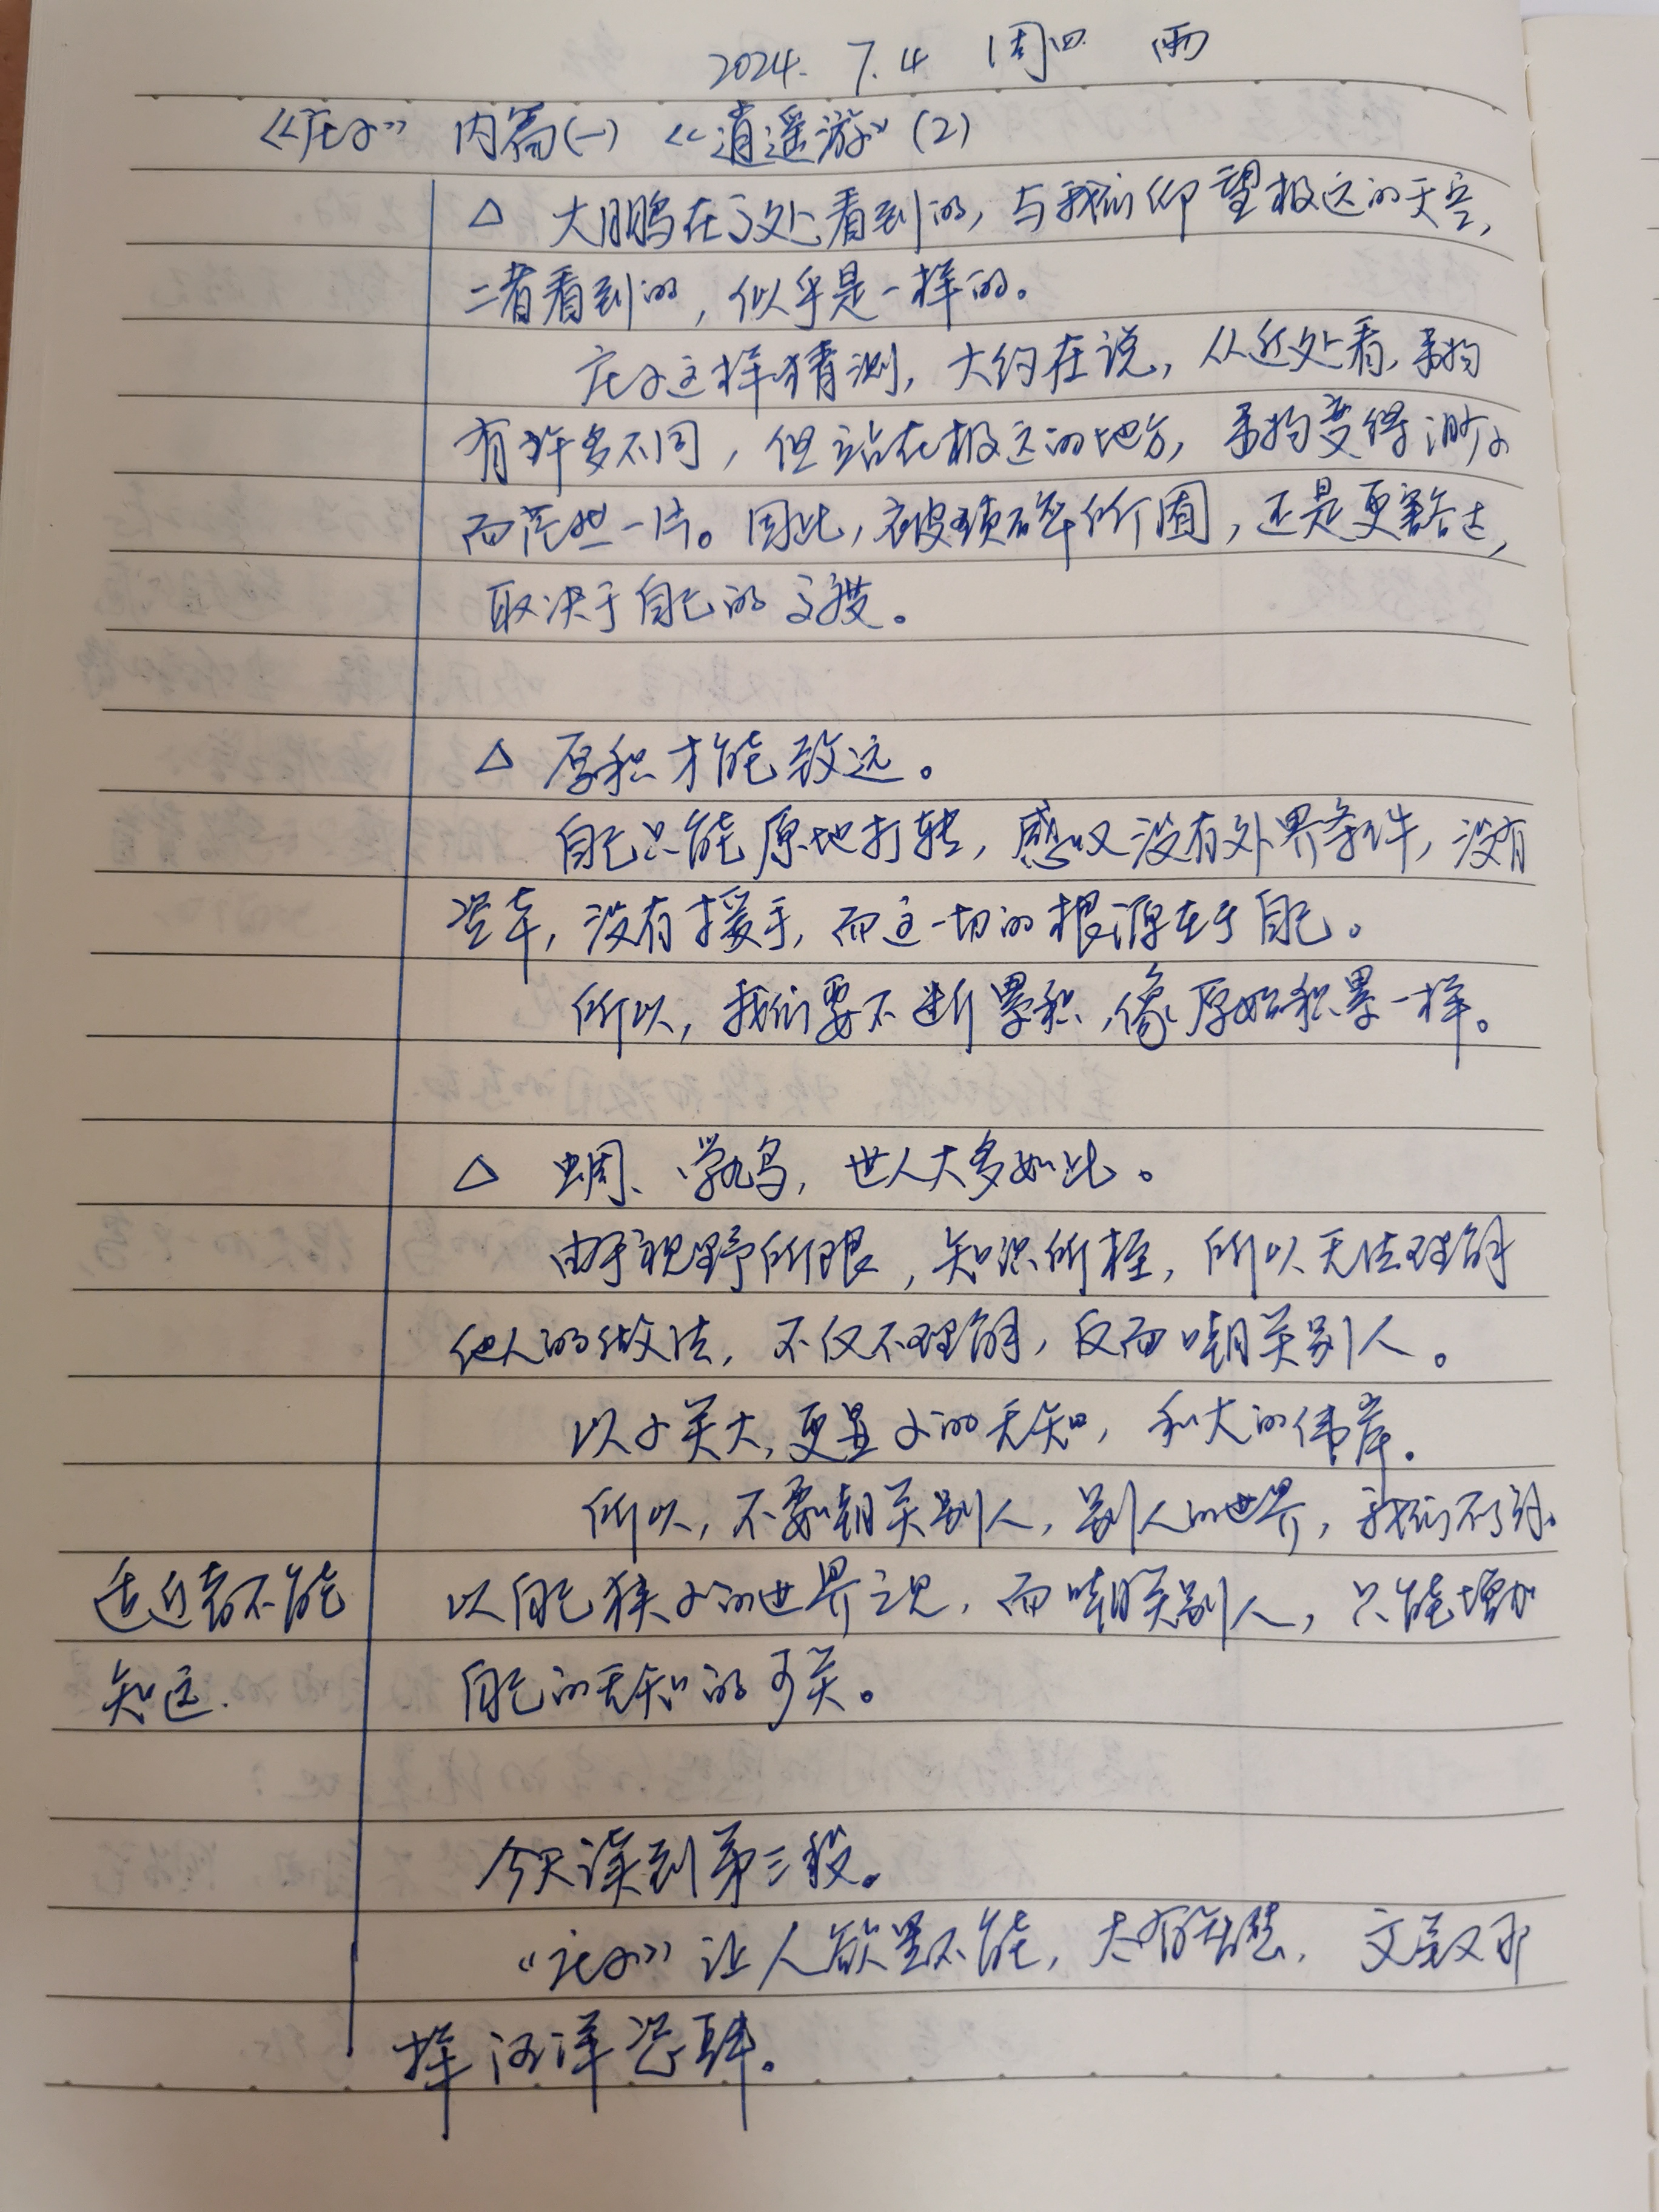 2024. 7.4 周四 雨
《庄子》 内篇(一) 《逍遥游》(2)
△ 大鹏在高处看到的，与我们仰望极远的天空，
二者看到的，似乎是一样的。
庄子这样猜测，大约在说，从近处看，事物
有许多不同，但站在极远的地方，事物变得渺小
而茫然一片。因此，被琐碎所围，还是更豁达，
取决于自己的高度。
△ 厚积才能致远。
自己只能原地打转，感叹没有外界条件，没有
没有援手，而这一切的根源在于自己。
所以，我们要不断累积，像原始积累一样。
△ 蜩、学鸠，世人大多如此。
由于视野所限，知识所框，所以无法理解
他人的做法，不仅不理解，反而嘲笑别人。
以小笑大，更显小的无知，和大的伟岸。
所以，不要嘲笑别人，别人的世界，我们不了解。
适近者不能
知远.
以自己狭小的世界之见，而嘲笑别人，只能增加
自己的无知的可笑。
今天读到第三段。
《庄子》让人欲罢不能，太有智慧，文章又那
样汪洋恣肆。